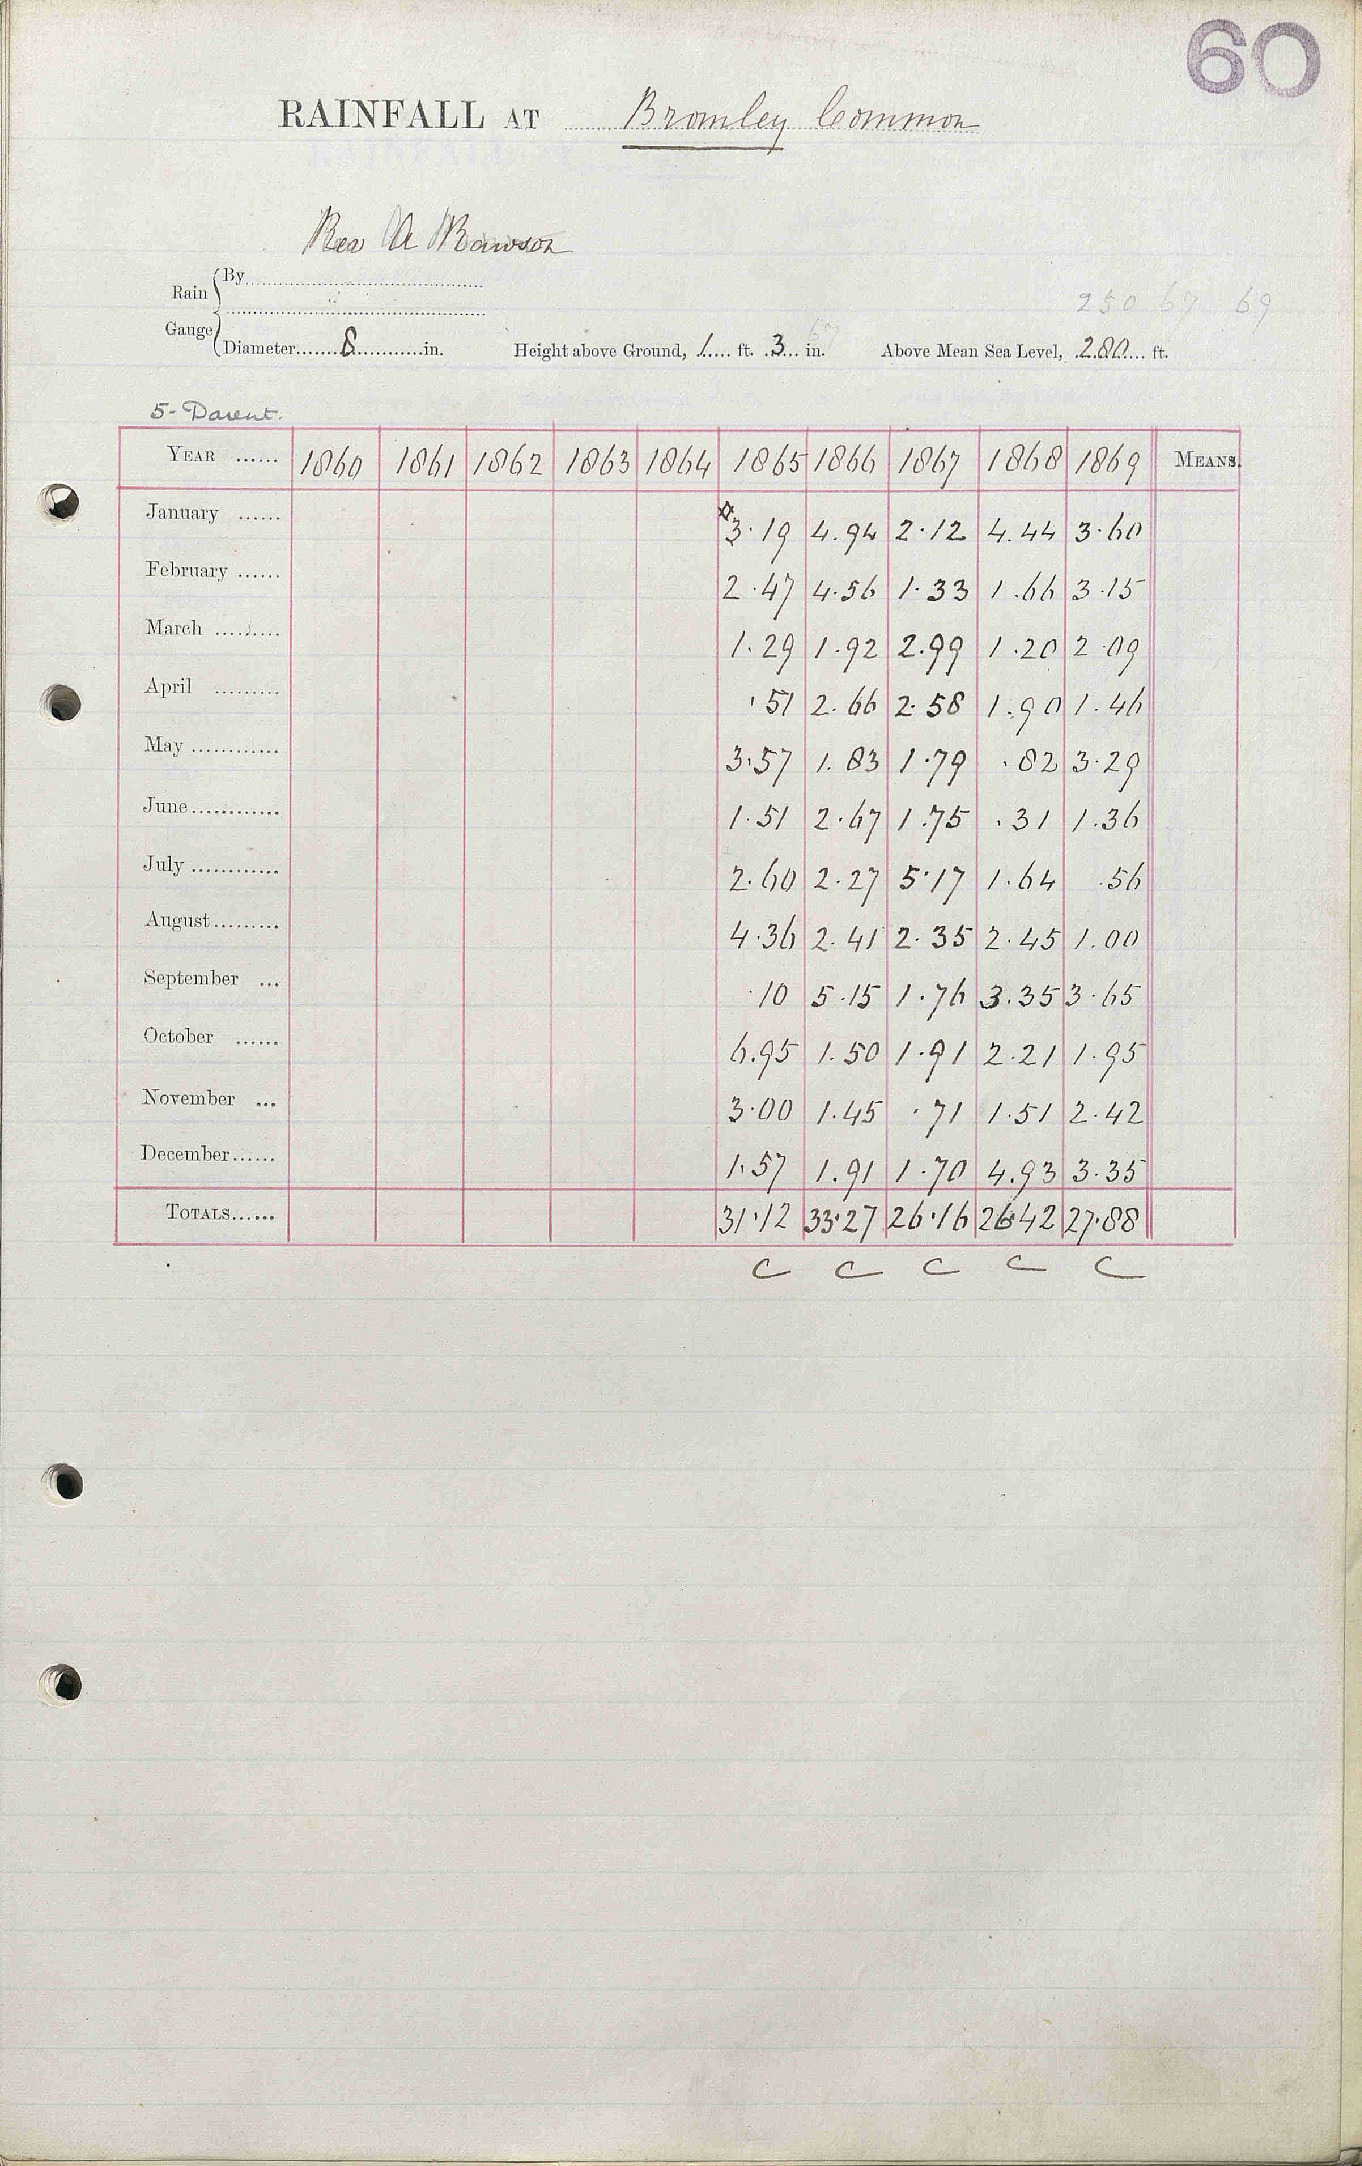 60
RAINFALL AT Bromley Common
Rev A Rawson
Rain Gauge
By
250 67 69
67
Diameter 8 in. Height above Ground, 1 ft. 3 in. Above Mean Sea Level, 280 ft.
5-Darent.
YEAR 1860 1861 1862 1863 1864 1865 1866 1867 1868 1869 MEANS.
January 3.19 4.94 2.12 4.44 3.60
February 2.47 4.56 1.33 1.66 3.15
March 1.29 1.92 2.99 1.20 2.09
April .51 2.66 2.58 1.90 1.46
May 3.57 1.83 1.79 .82 3.29
June 1.51 2.67 1.75 .31 1.36
July 2.60 2.27 5.17 1.64 .56
August 4.36 2.41 2.35 2.45 1.00
September .10 5.15 1.76 3.35 3.65
October 6.95 1.50 1.91 2.21 1.95
November 3.00 1.45 .71 1.51 2.42
December 1.57 1.91 1.70 4.93 3.35
TOTALS 31.12 33.27 26.16 26.42 27.88
C C C C C